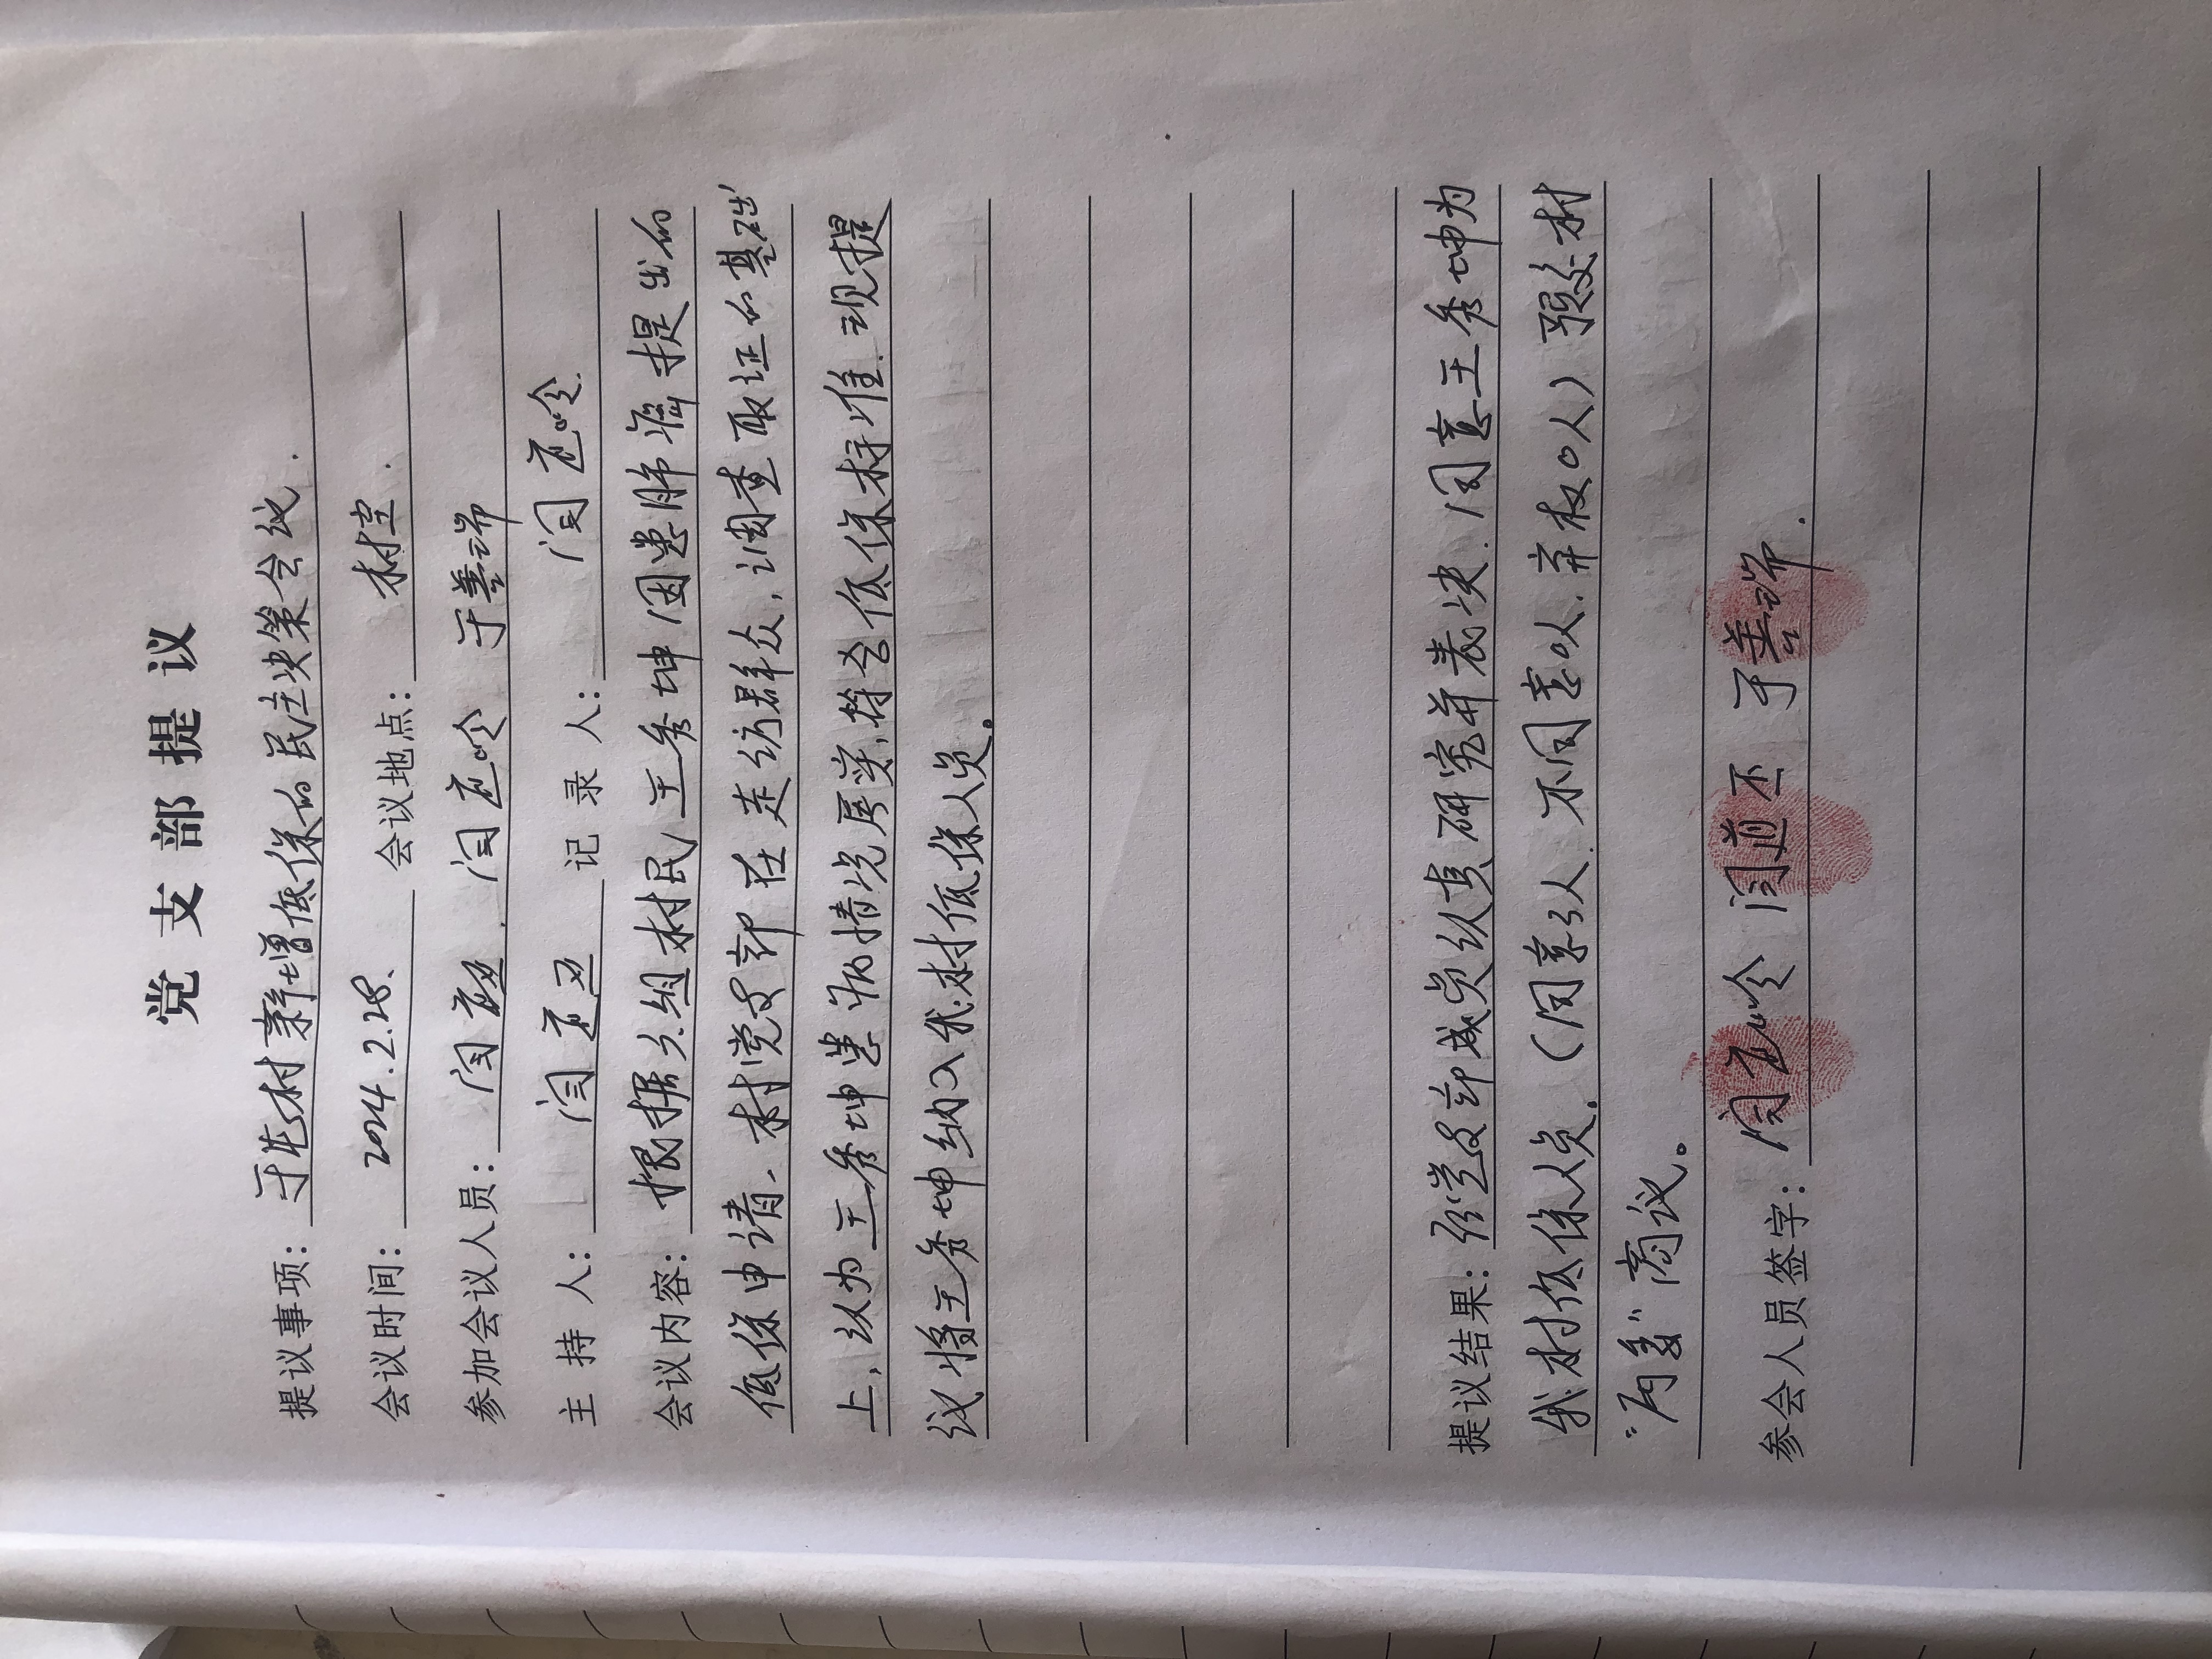 党支部提议
提议事项: 于屯村新增低保的民主决策会议.
会议时间: 2024.2.28. 会议地点: 村室.
参加会议人员: 闫道丕. 闫道岭 于善瑞
主持人: 闫道丕 记录人: 闫道岭.
会议内容: 根据六组村民王秀坤因患肺癌提出的
低保申请, 村党支部在走访群众, 调查取证的基础
上, 认为王秀坤患病情况属实, 符合低保标准. 现提
议将王秀坤纳入我村低保人员。
提议结果: 经党支部成员认真研究并表决. 同意王秀坤为
我村低保人员. (同意3人. 不同意0人. 弃权0人) 现交村
"两委"商议。
参会人员签字: 闫道岭 闫道丕 于善瑞.